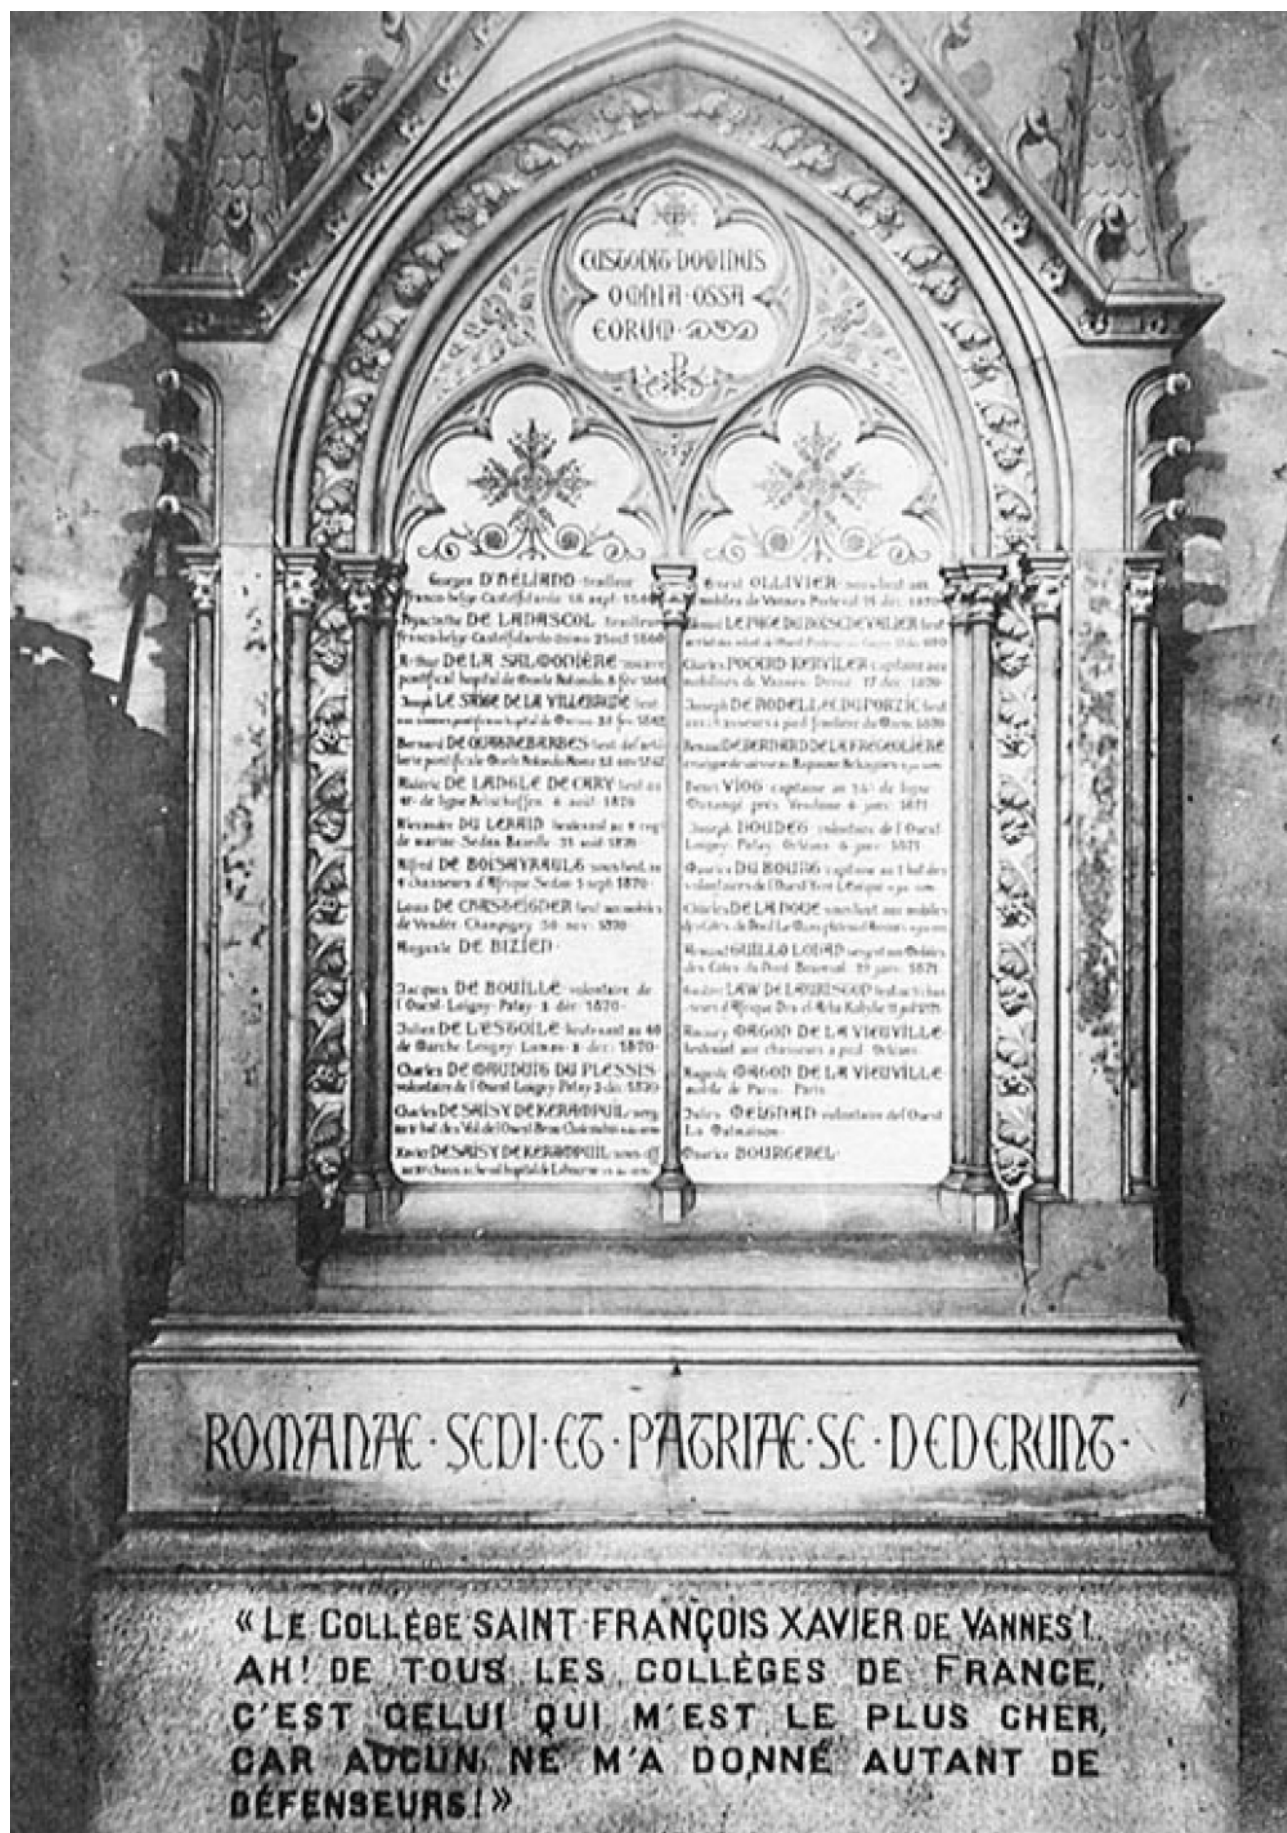 CUSTODIT·DOMINUS
OMNIA·OSSA
EORUM·
Georges D'HÉLIAND·tirailleur
franco-belge Castelfidardo 18 sept. 1860
Hyacinthe DE LANASCOL tirailleur
franco-belge·Castelfidardo·Osimo·2 oct 1860
Arthur DE LA SALMONIÈRE·zouave
pontifical hopital de Monte Rotondo. 8 fév.
Joseph LE SAIGE DE LA VILLEBRUNE lieut.
Bernard DE QUATREBARBES·lieut. d'artil-
lerie pontificale·Monte Rotondo·Rome·
DE LANGLE DE CARY lieut au
de ligne Reischoffen. 6 août·1870
Alexandre DU
de marine·Sedan Bazeille·31 août 1870
Alfred DE BOISAYRAULT sous lieut. au
chasseurs d'Afrique·Sedan 1 sept. 1870·
Louis DE CHASTEIGNER lieut aux mobiles
de Vendée. Champigny. 30·nov. 1870·
Auguste DE BIZIEN·
Jacques DE BOUILLÉ·volontaire de
l'Ouest·Loigny·Patay·2 déc. 1870·
Julien DE L'ESTOILE·lieutenant au 40
de Marche·Loigny·Lumeau·2·déc. 1870·
Charles DE MAUDUIT DU PLESSIS·
volontaire de l'Ouest Loigny Patay 2 déc. 1870·
Charles DE SAISY DE KERAMPUIL·serg.
au bat. des Vol. de l'Ouest
Xavier DE SAISY DE KERAMPUIL·sous-off
hopital de Libourne
Ernest OLLIVIER·sous-lieut aux
mobiles de Vannes 15 déc. 1870·
LE PAGE DU BOISCHEVALIER lieut
Charles POCARD KERVILER capitaine aux
mobilisés de Vannes· 17 déc. 1870·
Joseph DE RODELLEC DU PORZIC lieut
aux chasseurs à pied 1870
DE BERNARD DE LA FREGEOLIÈRE
enseigne de vaisseau
Henri VIOT·capitaine au de ligne
près Vendome 6 janv. 1871
Joseph HOUDET·volontaire de l'Ouest
Loigny·Patay·Orléans·6 janv. 1871·
Maurice DU BOURG·capitaine au bat des
volontaires de l'Ouest Yvré-Lévêque
Charles DE LA NOUE·sous lieut aux mobiles
des Côtes du Nord Le Mans
GUILLO LOHAN sergent aux Mobiles
des Côtes du Nord 19 janv. 1871·
LAW DE LAURISTON lieut au chas-
seurs d'Afrique
ORGON DE LA VIEUVILLE·
lieutenant aux chasseurs à pied·Orléans·
Auguste ORGON DE LA VIEUVILLE·
mobile de Paris· Paris
Jules MEIGNAN volontaire de l'Ouest
La Malmaison·
Maurice BOURGEREL·
ROMANAE·SEDI·ET·PATRIAE·SE·DEDERUNT·
«LE COLLÈGE SAINT-FRANÇOIS XAVIER DE VANNES!
AH! DE TOUS LES COLLÈGES DE FRANCE,
C'EST CELUI QUI M'EST LE PLUS CHER,
CAR AUCUN NE M'A DONNÉ AUTANT DE
DÉFENSEURS!»